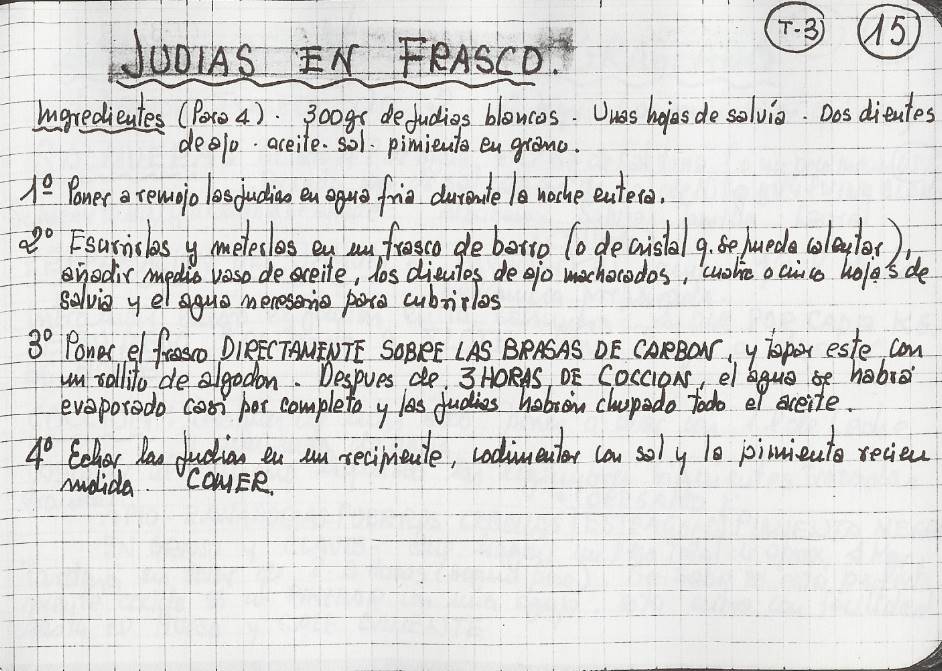 T-3 15
JUDIAS EN FRASCO.
Ingredientes (Para 4). 300gr de judias blancas. Unas hojas de salvia. Dos dientes
de ajo. aceite. sal. pimienta en grano.
1º Poner a remojo las judias en agua fria durante la noche entera.
2º Escurrirlas y meterlas en un frasco de barro (o de cristal q. se pueda calentar),
añadir medio vaso de aceite, los dientes de ajo machacados, cuatro o cinco hojas de
salvia y el agua necesaria para cubrirlas
3º Poner el frasco DIRECTAMENTE SOBRE LAS BRASAS DE CARBON, y tapar este con
un rollito de algodon. Despues de 3 HORAS DE COCCION, el agua se habrá
evaporado casi por completo y las judias habrán chupado todo el aceite.
4º Echar las judias en un recipiente, codimentar con sal y la pimienta recien
molida. COMER.